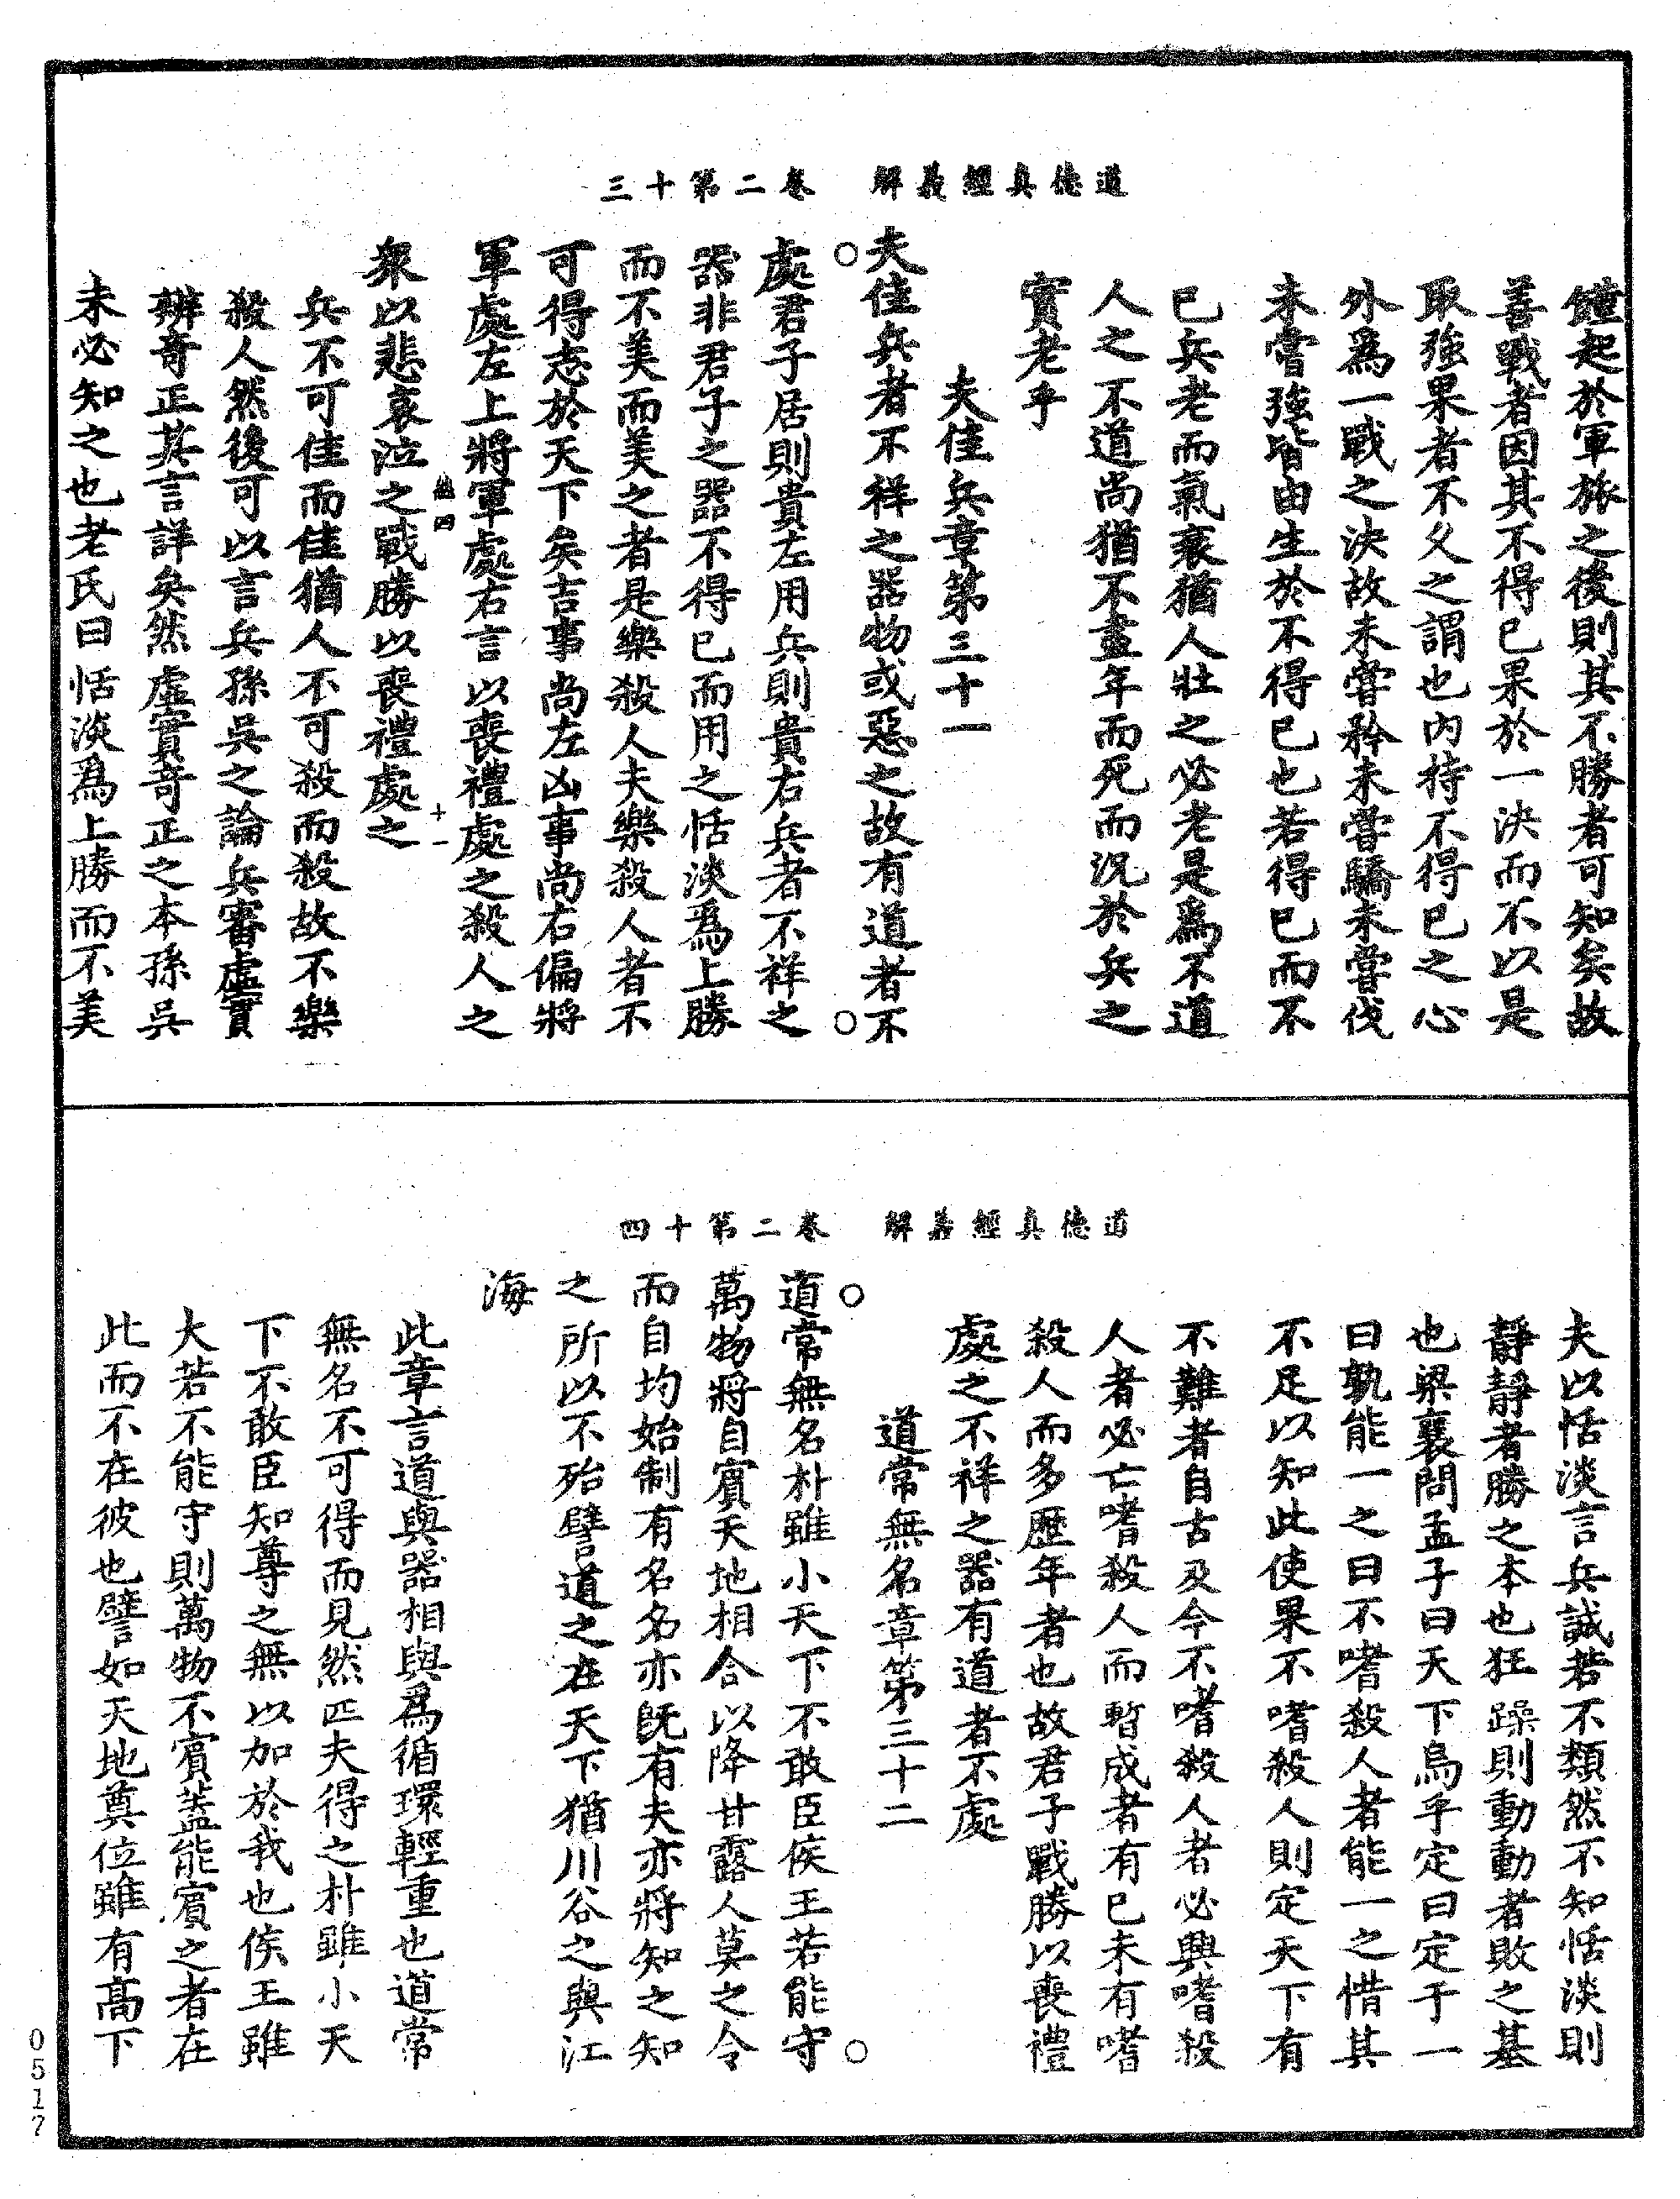 道德真經義解　卷二第十三
饉起於軍旅之後則其不勝者可知矣故
善戰者因其不得已果於一決而不以是
取強果者不久之謂也內持不得已之心
外爲一戰之決故未嘗矜未嘗驕未嘗伐
未嘗強皆由生於不得已也若得已而不
已兵老而氣衰猶人壯之必老是爲不道
人之不道尚猶不盡年而死而況於兵之
實老乎
夫佳兵章第三十一
夫佳兵者不祥之器物或惡之故有道者不
處君子居則貴左用兵則貴右兵者不祥之
器非君子之器不得已而用之恬淡爲上勝
而不美而美之者是樂殺人夫樂殺人者不
可得志於天下矣吉事尚左凶事尚右偏將
軍處左上將軍處右言以喪禮處之殺人之
衆以悲哀泣之戰勝以喪禮處之
兵不可佳而佳猶人不可殺而殺故不樂
殺人然後可以言兵孫吳之論兵審虛實
辨奇正其言詳矣然虛實奇正之本孫吳
未必知之也老氏曰恬淡爲上勝而不美
道德真經義解　卷二第十四
夫以恬淡言兵誠若不類然不知恬淡則
靜靜者勝之本也狂躁則動動者敗之基
也梁襄問孟子曰天下烏乎定曰定于一
曰孰能一之曰不嗜殺人者能一之惜其
不足以知此使果不嗜殺人則定天下有
不難者自古及今不嗜殺人者必興嗜殺
人者必亡嗜殺人而暫成者有已未有嗜
殺人而多歷年者也故君子戰勝以喪禮
處之不祥之器有道者不處
道常無名章第三十二
道常無名朴雖小天下不敢臣侯王若能守
萬物將自賓天地相合以降甘露人莫之令
而自均始制有名名亦既有夫亦將知之知
之所以不殆譬道之在天下猶川谷之與江
海
此章言道與器相與爲循環輕重也道常
無名不可得而見然匹夫得之朴雖小天
下不敢臣知尊之無以加於我也侯王雖
大若不能守則萬物不賓蓋能賓之者在
此而不在彼也譬如天地奠位雖有高下
0517